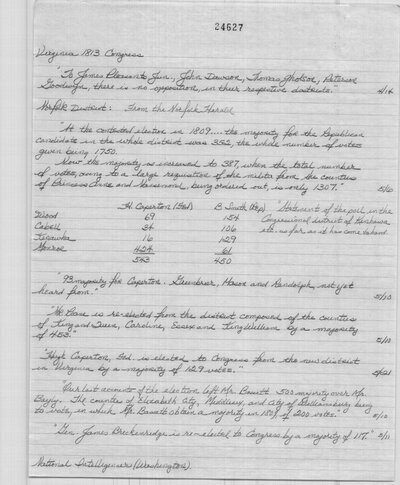 24627
Virginia 1813 Congress
"To James Pleasants Jun., John Dawson, Thomas Gholson, Peterson
Goodwyn, there is no opposition in their respective districts." 4/14
Norfolk District: From the Norfolk Herald
"At the contested election in 1809.... the majority for the Republican
candidate in the whole district was 352, the whole number of votes
given being 1750.
Now the majority is increased to 387, when the total number
of votes, owing to a large requisition of the militia from the counties
of Princess Anne and Nansemond, being ordered out, is only 1307." 5/6
H. Caperton (Fed) B. Smith (Rep) "Statement of the poll in the
Wood 69 154 Congressional district of Kanhawa
Cabell 34 106 etc. as far as it has come to hand.
Kanawha 16 129
Monroe 424 61
543 450
"93 majority for Caperton. Greenbrier, Mason and Randolph, not yet
heard from." 5/10
"Mr. Roane is re-elected from the district composed of the counties
of King and Queen, Caroline, Essex and King William by a majority
of 453." 5/10
"Hugh Caperton, Fed. is elected to Congress from the new district
in Virginia by a majority of 129 votes."
"Our last accounts of the election left Mr. Bassett 500 majority over Mr.
Bayly. The counties of Elizabeth City, Middlesex, and City of Williamsburg being
to vote, in which Mr. Bassett obtain a majority in 150 of 200 votes." 5/10
"Gen. James Breckenridge is re-elected to Congress by a majority of 117." 5/11
National Intelligencer (Washington).